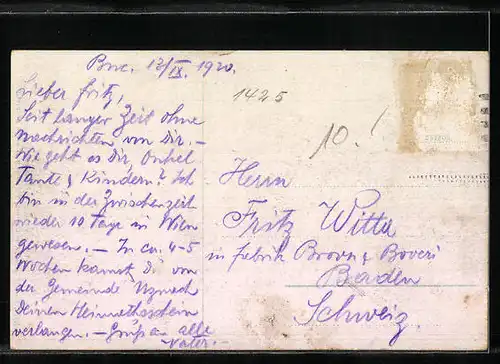 12/IX. 1920.
Lieber Fritz,
Seit langer Zeit ohne
Nachrichten von Dir. –
Wie geht es Dir, Onkel
Tante & Kindern? Ich
bin in der Zwischenzeit
wieder 10 Tage in Wien
gewesen. – In ca. 4-5
Wochen kannst Du von
der Gemeinde Uznach
Deinen Heimathsschein
verlangen. – Gruß an alle
Vater.
1425
10.!
Herrn
Fritz Witta
in fabrik Brown & Boveri
Baden
Schweiz.